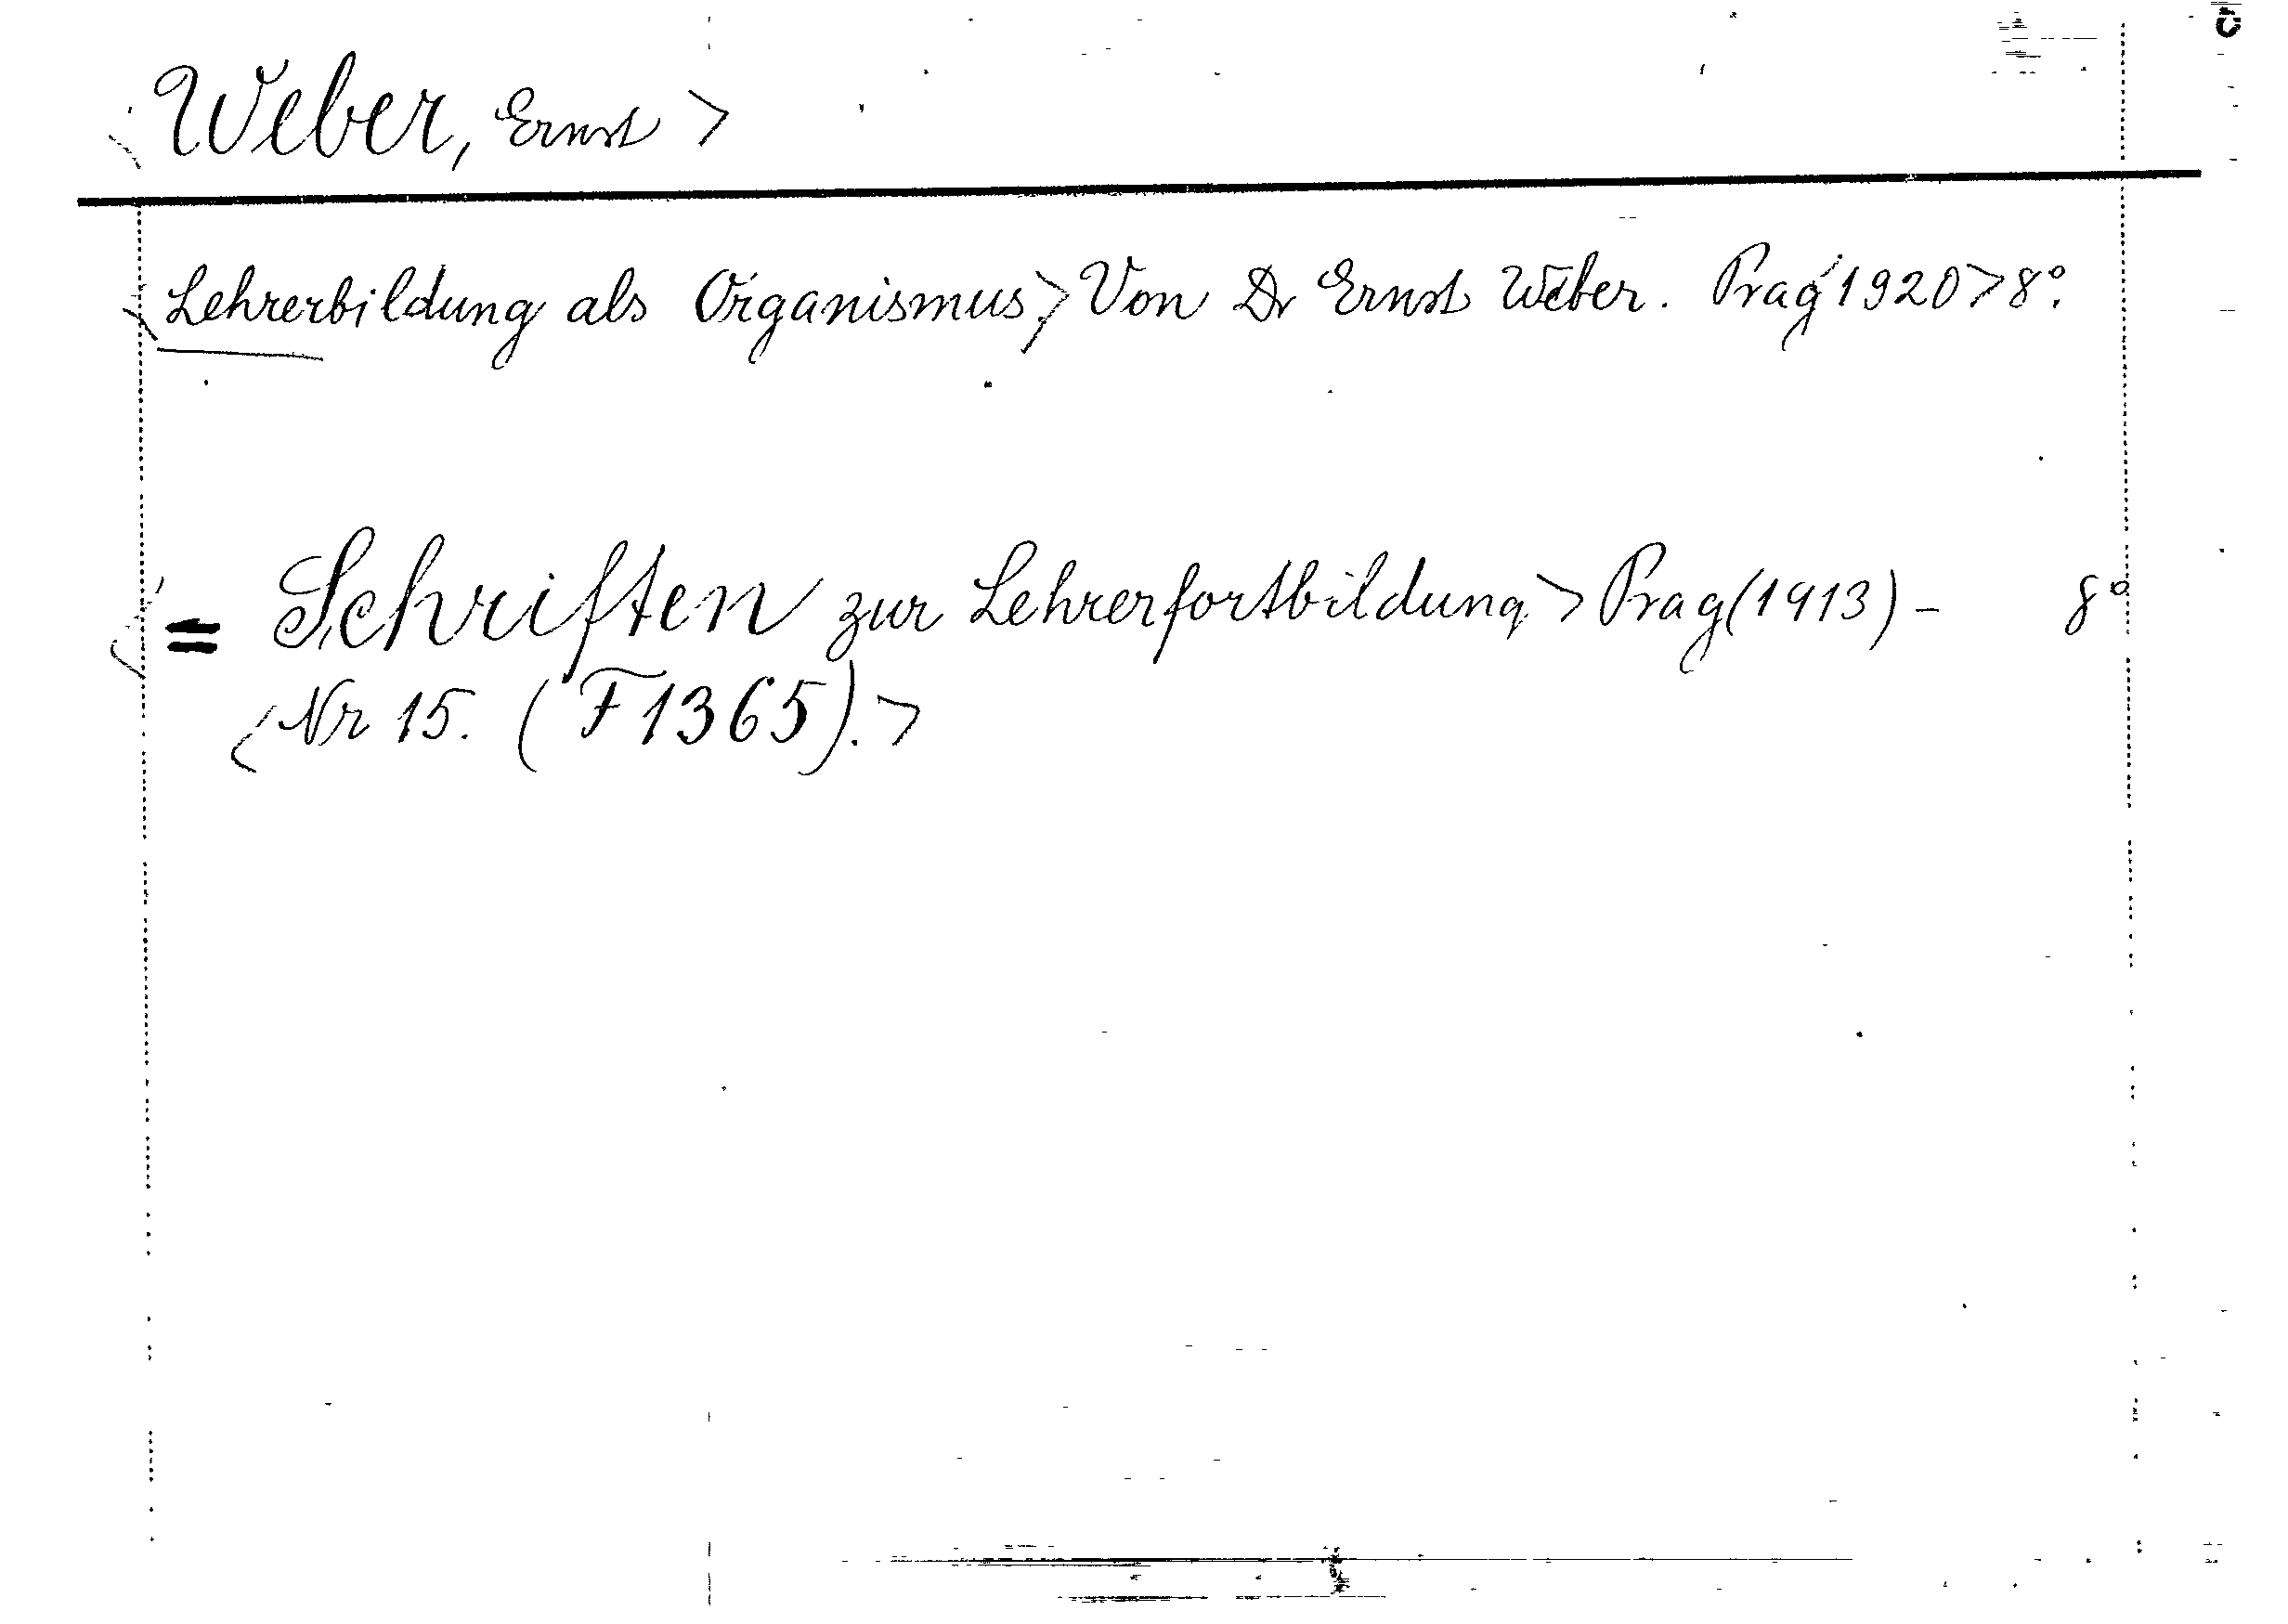 Weber, Ernst >
Lehrerbildung als Organismus.> Von Dr Ernst Weber. Prag 1920 > 8°.
= Schriften zur Lehrerfortbildung > Prag (1913) - 8°
< Nr 15. (F 1365). >